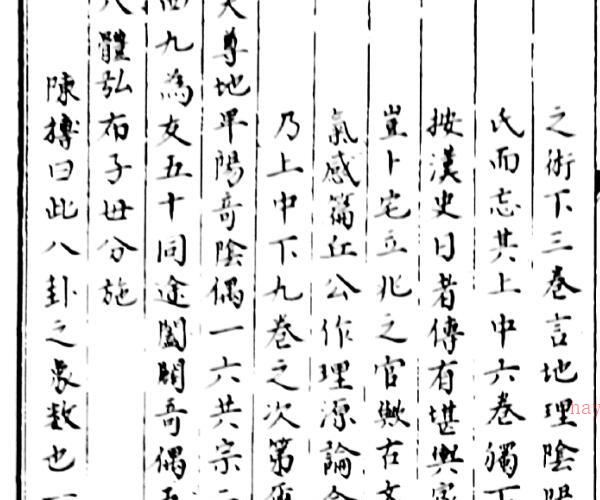 之術下三卷言地理陰陽
氏而忘其上中六卷獨下
按漢史日者傳有堪輿家
豈卜宅立兆之官歟右文
氣感篇丘公作理源論今
乃上中下九卷之次第
天尊地卑陽奇陰偶一六共宗二
四九為友五十同途闔闢奇偶五
八體弘布子母分施
陳摶曰此八卦之象數也一
nay